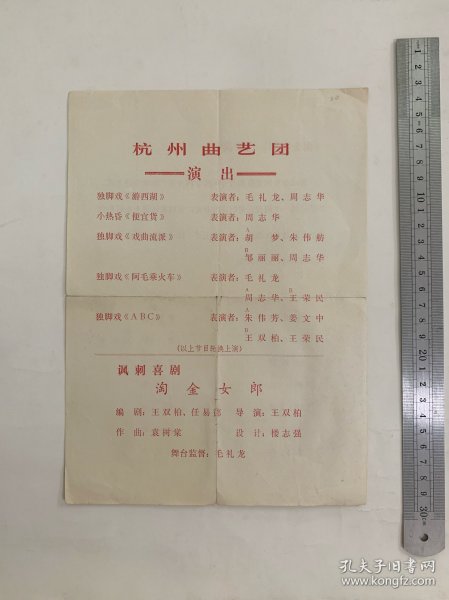 杭州曲艺团
演出
独脚戏《游西湖》 表演者：毛礼龙、周志华
小热昏《便宜货》 表演者：周志华
独脚戏《戏曲流派》 表演者：A胡 梦、朱伟舫
B邹丽丽、周志华
独脚戏《阿毛乘火车》 表演者：毛礼龙
A周志华、B王荣民
独脚戏《ABC》 表演者：A朱伟芳、姜文中
B王双柏、王荣民
（以上节目轮换上演）
讽刺喜剧
淘金女郎
编 剧：王双柏、任易 导 演：王双柏
作 曲：袁树棠 设 计：楼志强
舞台监督：毛礼龙
孔夫子旧书网
www.kongfz.com